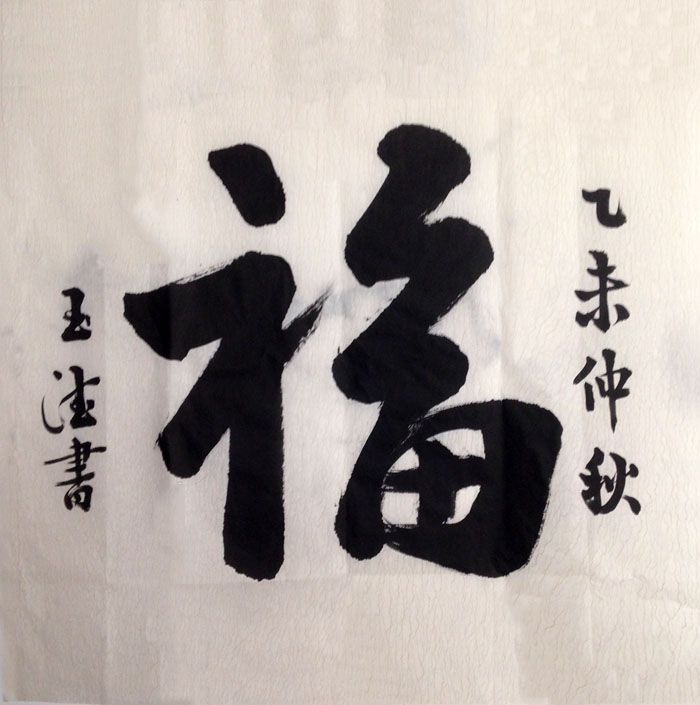 乙未仲秋
福
玉法書